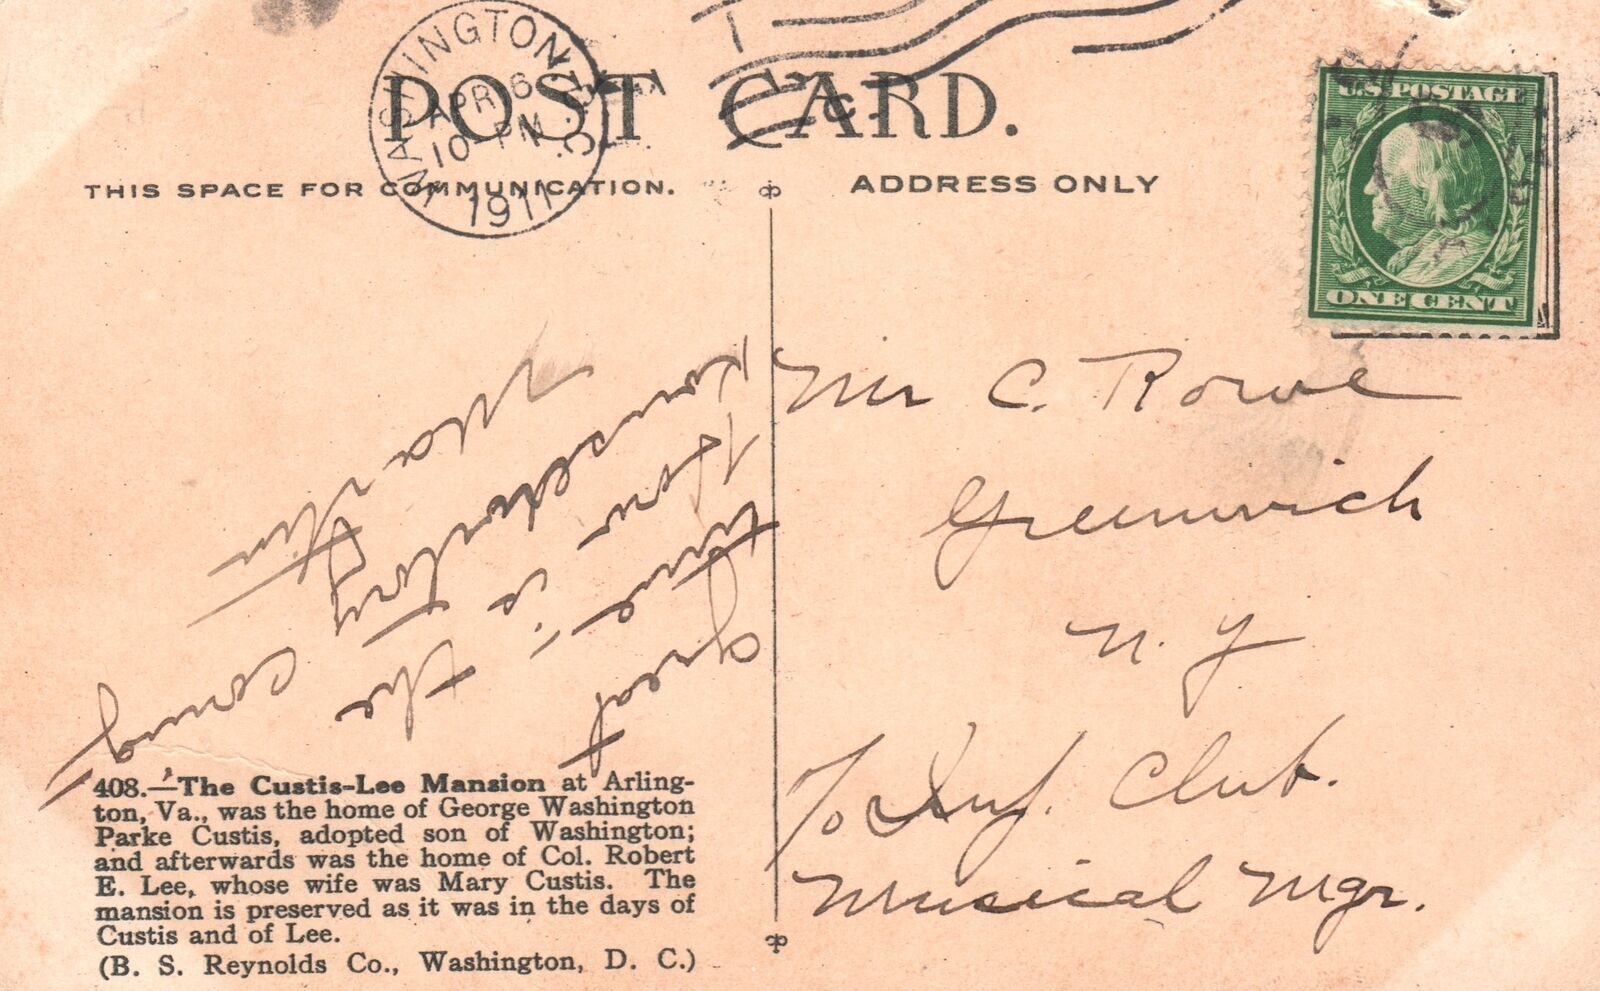 POST CARD.
WASHINGTON, D.C.
APR 6
10 PM
1911
THIS SPACE FOR COMMUNICATION.
ADDRESS ONLY
U.S. POSTAGE
ONE CENT
great
time
How is the
coming
Martin
Mr C. Rowe
Greenwich
N. Y
c/o Inf. Club.
Musical Mgr.
408.—The Custis-Lee Mansion at Arling-
ton, Va., was the home of George Washington
Parke Custis, adopted son of Washington;
and afterwards was the home of Col. Robert
E. Lee, whose wife was Mary Custis. The
mansion is preserved as it was in the days of
Custis and of Lee.
(B. S. Reynolds Co., Washington, D. C.)